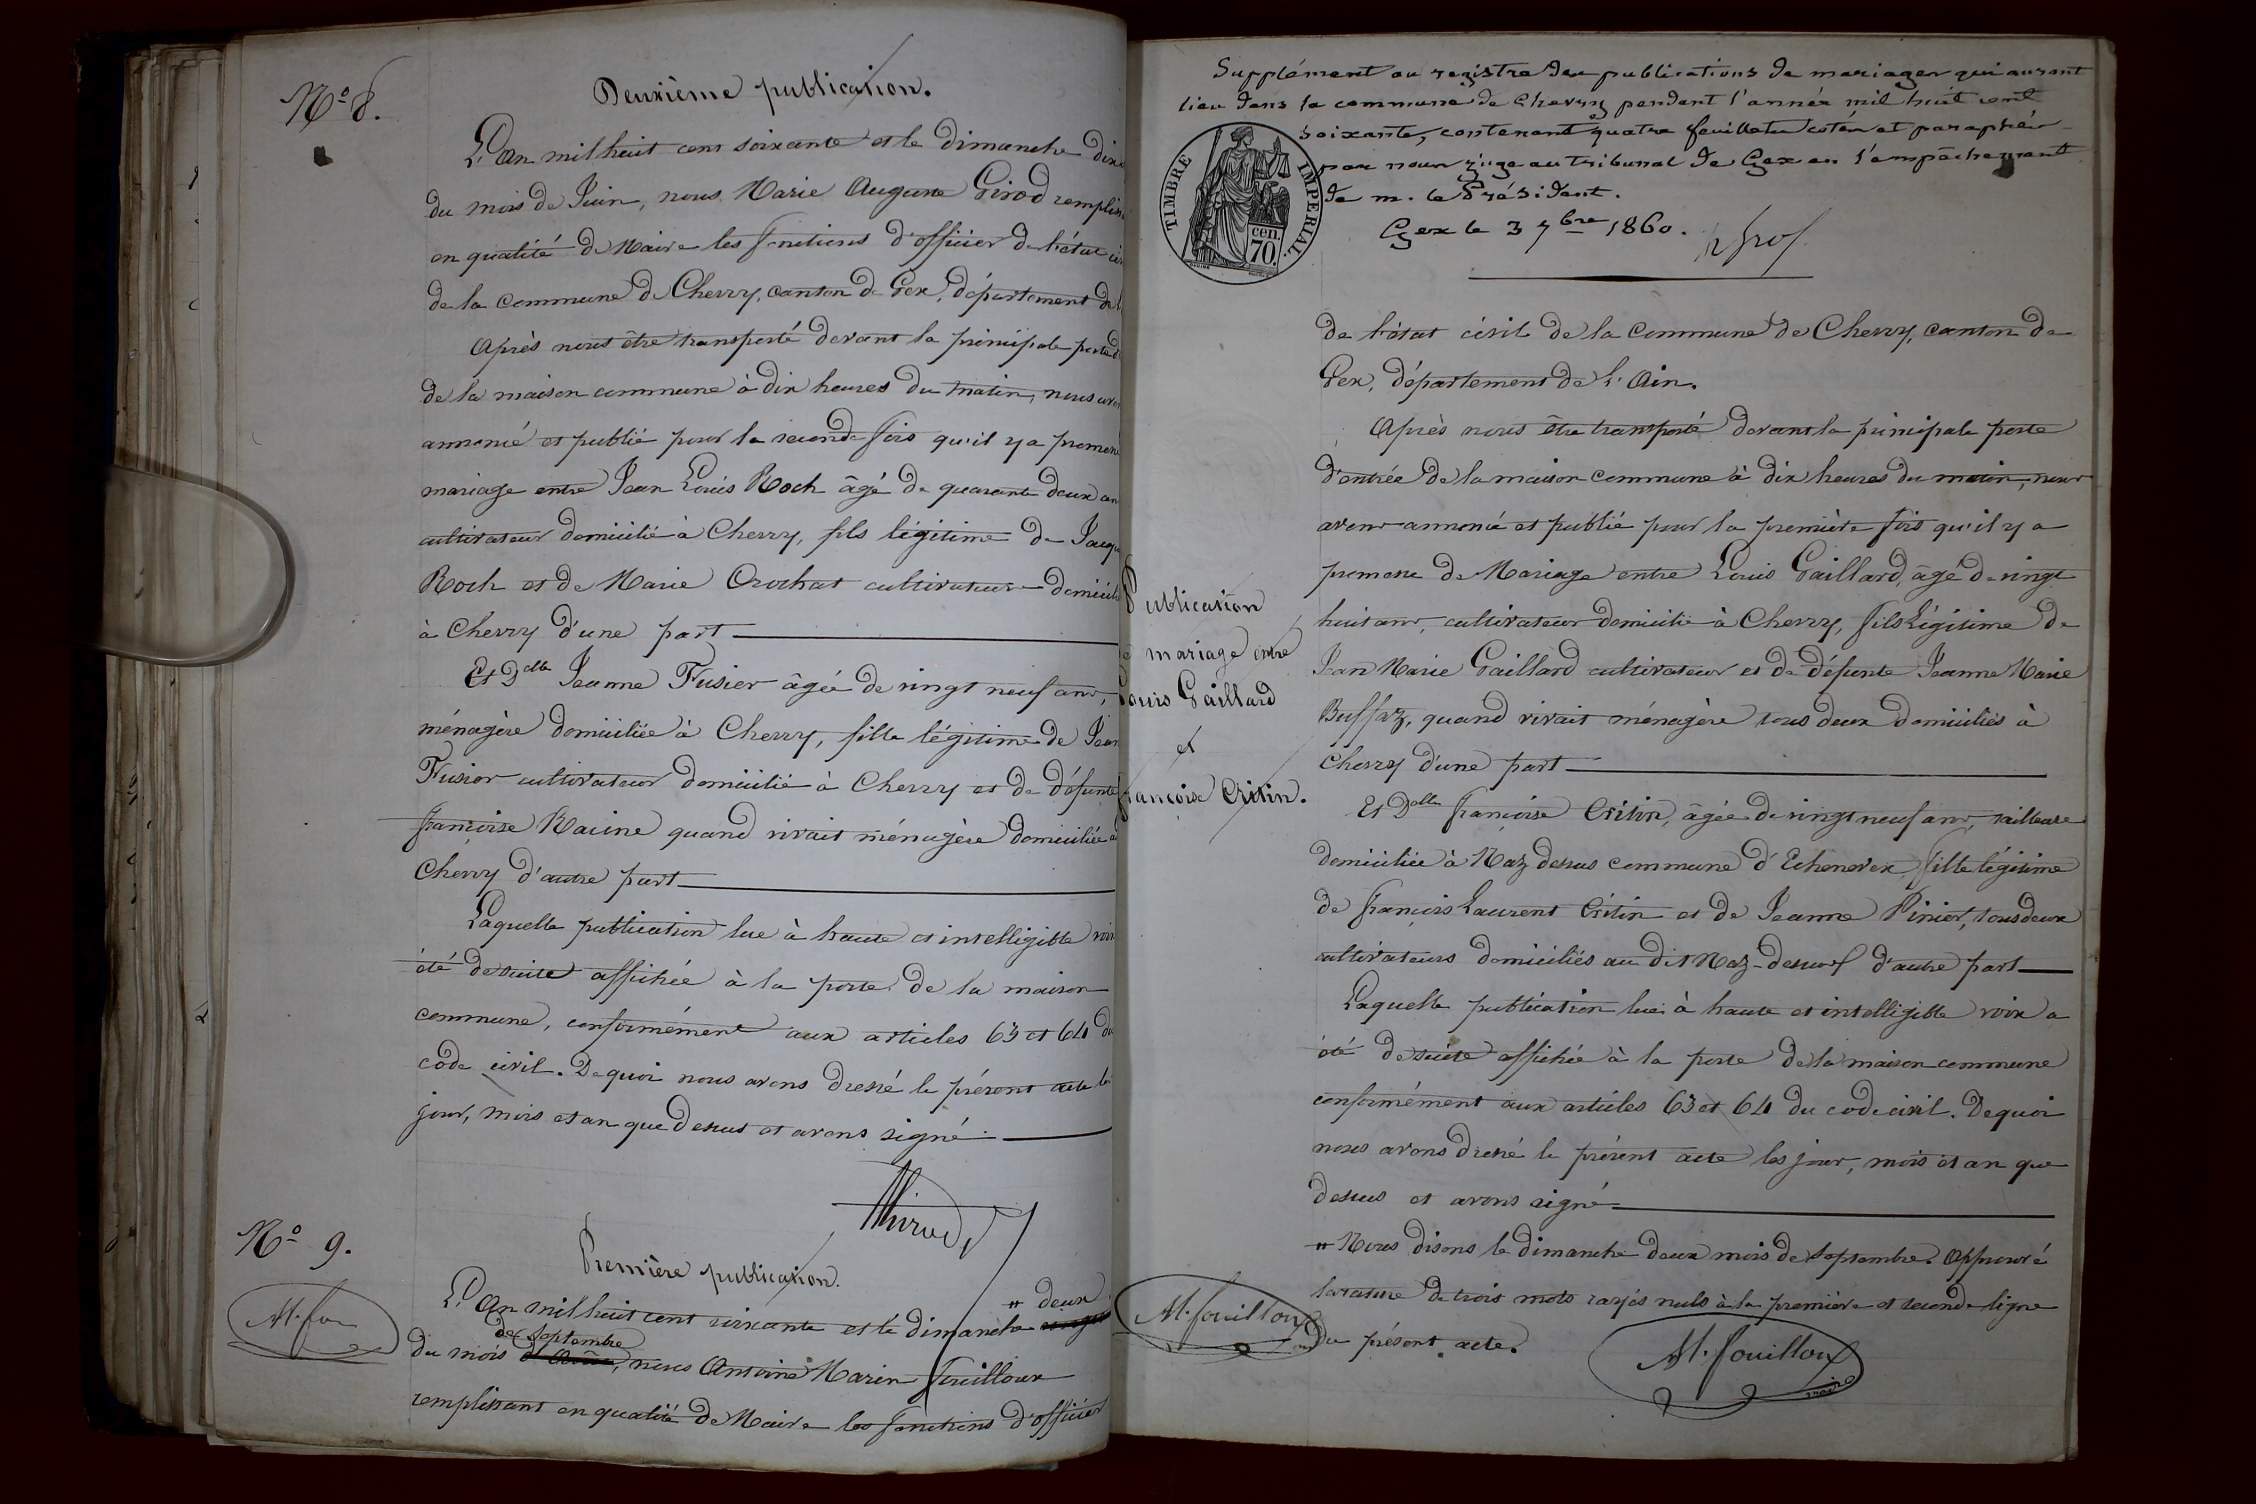 N.° 8.
Deuxième publication.
L'An mil huit cent soixante et le dimanche
du mois de Juin, nous Marie Auguste Girod
en qualité de Maire les fonctions d'officier de l'état
de la commune de Chevry, canton de Gex, département de
Après nous être transporté devant la principale porte
de la maison commune à dix heures du matin, nous
annoncé et publié pour la seconde fois qu'il y a
mariage entre Jean Louis Roch âgé de quarante deux
cultivateur domicilié à Chevry, fils légitime de
Roch et de Marie Crochat cultivateurs
à Chevry d'une part
Et Dlle Jeanne Fusier âgée de vingt neuf ans,
ménagère domiciliée à Chevry, fille légitime de
Fusier cultivateur domicilié à Chevry et de défunte
françoise Racine quand vivait ménagère domiciliée à
Chevry d'autre part
Laquelle publication lue à haute et intelligible
été de suite affichée à la porte de la maison
commune, conformément aux articles 63 et 64 du
code civil. De quoi nous avons dressé le présent acte les
jour, mois et an que dessus et avons signé.
N.° 9.
Première publication.
L'An mil huit cent soixante et le dimanche deux
du mois de Septembre, nous Antoine Marin Fouilloux
remplissant en qualité de Maire les fonctions d'officier
Supplément au registre des publications de mariages qui auront
lieu dans la commune de Chevry pendant l'année mil huit cent
soixante, contenant quatre feuillets cotés et paraphés
par nous juge au tribunal de Gex en l'empêchement
de m. le Président.
Gex le 3 7bre 1860.
TIMBRE IMPERIAL
cen. 70.
de l'état civil de la commune de Chevry, canton de
Gex, département de l'Ain.
Après nous être transporté devant la principale porte
d'entrée de la maison commune à dix heures du matin, nous
avons annoncé et publié pour la première fois qu'il y a
promesse de Mariage entre Louis Gaillard, âgé de vingt
huit ans, cultivateur domicilié à Chevry, fils légitime de
Jean Marie Gaillard cultivateur et de défunte Jeanne Marie
Buffaz, quand vivait ménagère tous deux domiciliés à
Chevry d'une part
Et Dlle françoise Critin, âgée de vingt neuf ans, tailleuse
domiciliée à Naz dessus commune d'Echenevex, fille légitime
de françois Laurent Critin et de Jeanne Pinier, tous deux
cultivateurs domiciliés au dit Naz-dessus d'autre part
Laquelle publication lue à haute et intelligible voix a
été de suite affichée à la porte de la maison commune
conformément aux articles 63 et 64 du code civil. De quoi
nous avons dressé le présent acte les jour, mois et an que
dessus et avons signé
Nous disons le dimanche deux mois de Septembre. Approuvé
la rature de trois mots rayés nuls à la première et seconde ligne
du présent acte.
Publication
mariage entre
Louis Gaillard
et
françoise Critin.
M. fouilloux
M. fouilloux
maire